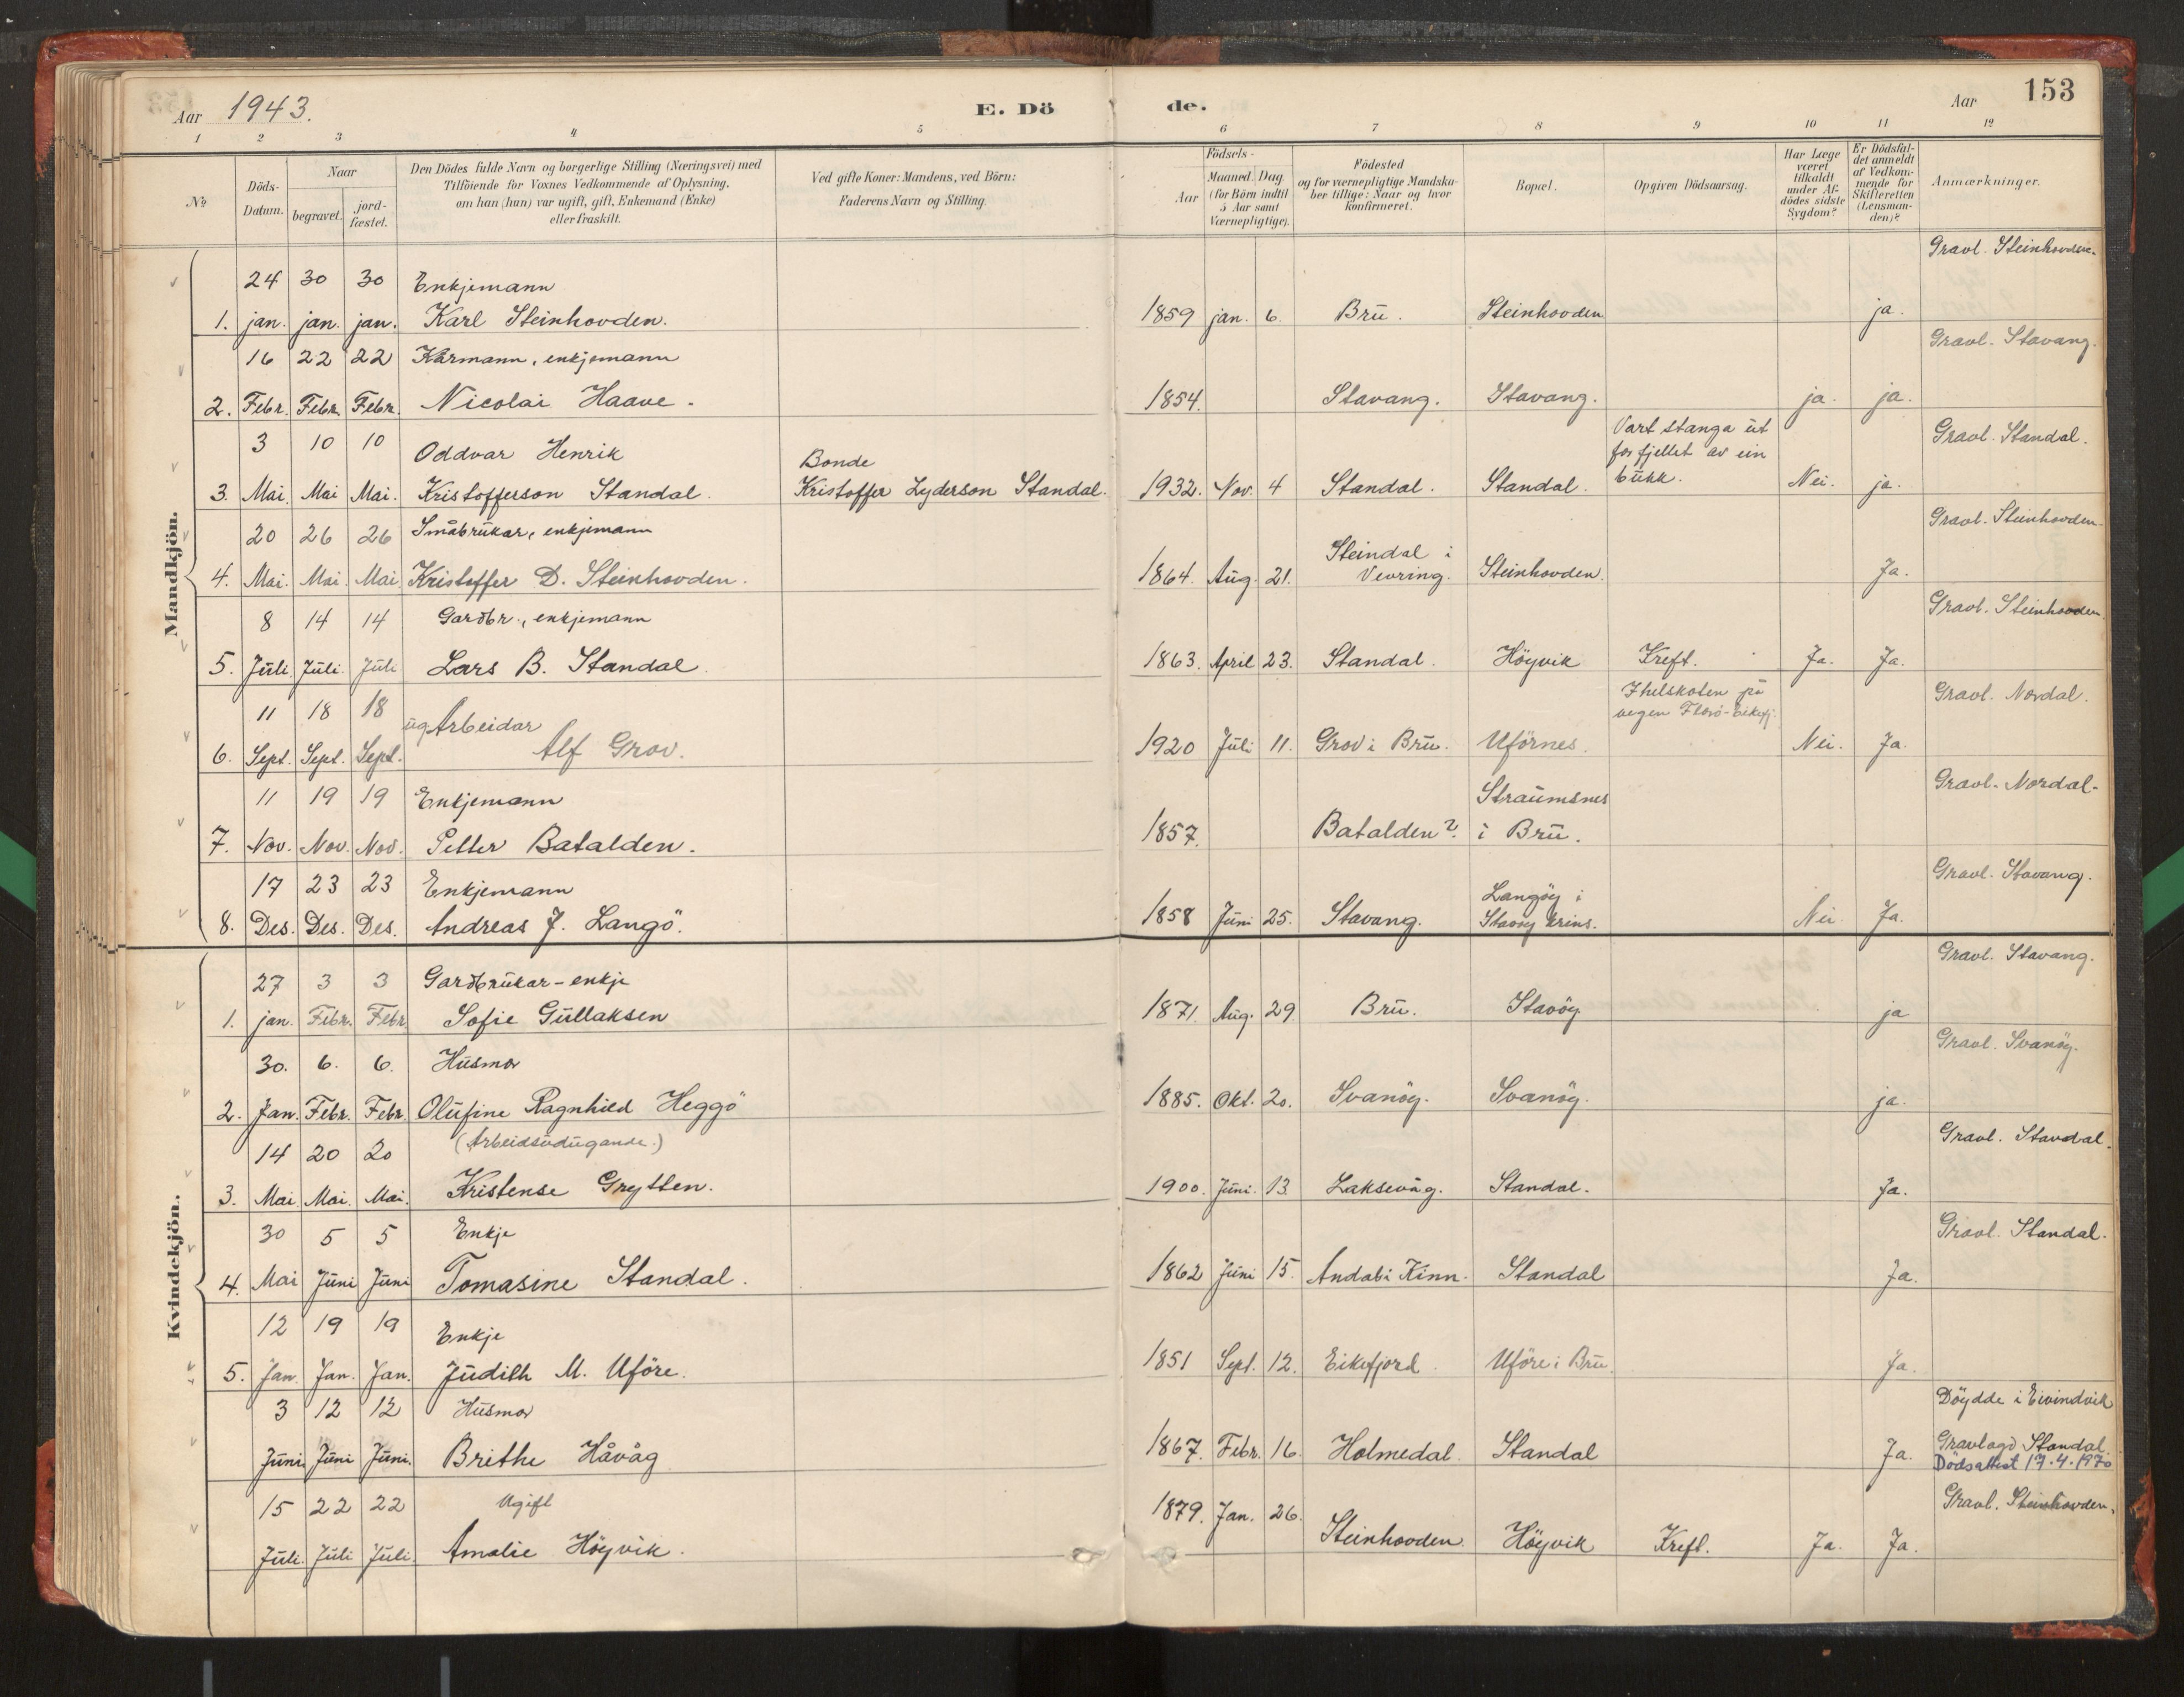 Aar 1943. E. Dö de. Aar 153
1 2 3 4 5 6 7 8 9 10 11 12
No
Döds-Datum.
Naar
begravet.
jord-fæstet.
Den Dödes fulde Navn og borgerlige Stilling (Næringsvei) med
Tilföiende for Voxnes Vedkommende af Oplysning,
om han (hun) var ugift, gift, Enkemand (Enke)
eller fraskilt.
Ved gifte Koner: Mandens, ved Börn:
Faderens Navn og Stilling.
Födsels-
Aar
Maaned. Dag.
(for Börn indtil
5 Aar samt
Værnepligtige).
Födested
og for værnepligtige Mandska-
ber tillige: Naar og hvor
konfirmeret.
Bopæl.
Opgiven Dödsaarsag.
Har Læge
været
tilkaldt
under Af-
dödes sidste
Sygdom?
Er Dödsfal-
det anmeldt
af Vedkom-
mende for
Skifteretten
(Lensman-
den)?
Anmærkninger.
Mandkjön.
Gravl. Steinhovden.
24 30 30 Enkjemann
1. jan. jan. jan. Karl Steinhovden. 1859 jan. 6. Bru. Steinhovden ja.
16 22 22 Kårmann, enkjemann Gravl. Stavang.
2. Febr. Febr. Febr. Nicolai Haave. 1854. Stavang. Stavang. ja. ja.
3 10 10 Oddvar Henrik Bonde Vart stanga ut Gravl. Standal.
for fjellet av ein
3. Mai. Mai Mai. Kristofferson Standal. Kristoffer Lyderson Standal. 1932. Nov. 4 Standal. Standal. bukk. Nei. ja.
20 26 26 Småbrukar, enkjemann Steindal i Gravl. Steinhovden.
4. Mai. Mai. Mai Kristoffer D. Steinhovden. 1864. Aug. 21. Vevring. Steinhovden. Ja.
8 14 14 Gardbr., enkjemann Gravl. Steinhovden
5. Juli. Juli. Juli Lars B. Standal. 1863. April 23. Standal. Höyvik Kreft. Ja. Ja.
11 18 18 ug Arbeidar Ihelskoten på Gravl. Nordal.
vegen Florö-Eikefj.
6. Sept. Sept. Sept. Alf Grov. 1920 Juli 11. Grov i Bru. Uförnes. Nei. Ja.
11 19 19 Enkjemann Straumsnes Gravl. Nordal.
7. Nov. Nov. Nov. Petter Batalden. 1857. Batalden? i Bru.
17 23 23 Enkjemann Langöy i Gravl. Stavang.
8. Des. Des. Des. Andreas J. Langö. 1858 Juni 25. Stavang. Stavöy krins. Nei Ja.
Kvindekjön.
27 3 3 Gardbrukar-enkje Gravl. Stavang.
1. jan. Febr. Febr Sofie Gullaksen 1871. Aug. 29. Bru. Stavöy ja
30. 6. 6. Husmor Gravl. Svanöy.
2. Jan. Febr. Febr Olufine Ragnhild Heggö 1885. Okt. 20. Svanöy. Svanöy. ja.
14 20 20 (Arbeidsudugande.) Gravl. Standal.
3. Mai Mai. Mai. Kristense Grytten. 1900. Juni. 13. Laksevåg. Standal. Ja.
30 5 5 Enkje Gravl. Standal.
4. Mai Juni Juni Tomasine Standal. 1862 Juni 15. Andal i Kinn. Standal Ja.
12 19 19 Enkje
5. Jan. Jan. Jan. Judith M. Uföre. 1851 Sept. 12. Eikefjord. Uföre i Bru. Ja.
3 12 12 Husmor Döydde i Eivindvik
Juni Juni Juni. Brithe Håvåg 1867. Febr. 16. Holmedal. Standal Ja. Gravlagd Standal.
Dödsattest 17.4.1970
15 22 22 Ugift 1879. Jan. 26. Gravl. Steinhovden.
Juli. Juli Juli. Amalie Höyvik. Steinhovden. Höyvik Kreft. Ja. Ja.